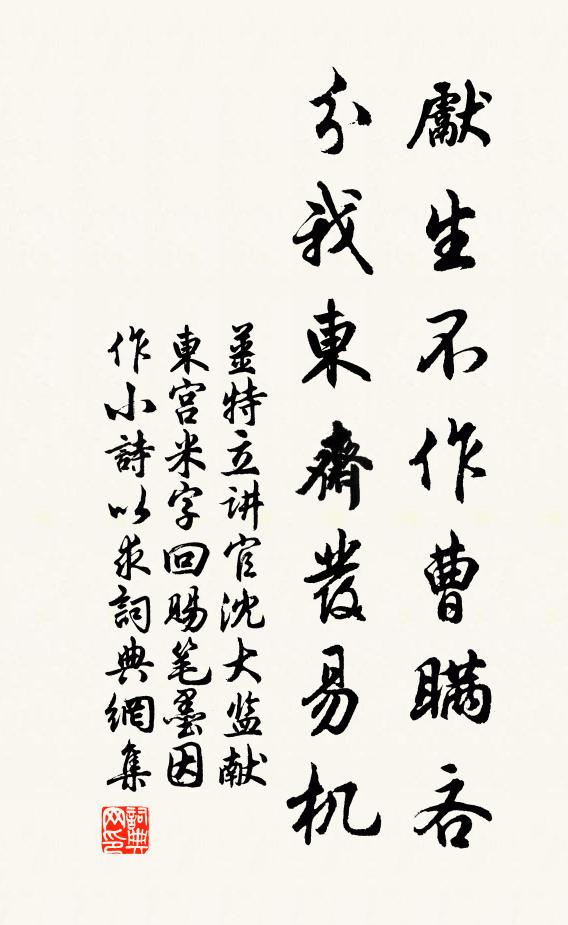 獻生不作曹瞞吝
分我東齋發易机
姜特立讲官沈大监献
東宫米字回賜笔墨因
作小詩以求詞典網集
詞典网印